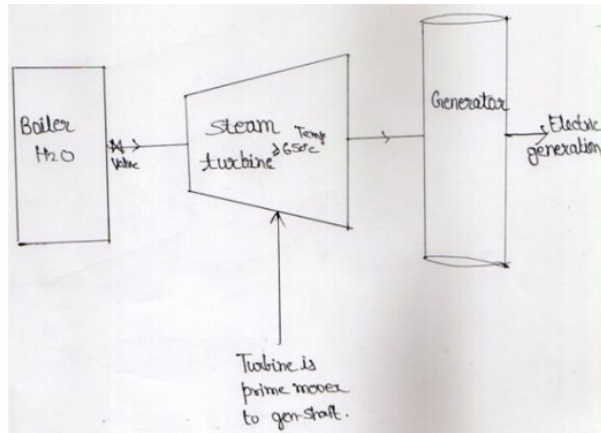 Boiler
H2O
Valve
Steam
turbine
Temp
≥650°c
Generator
Electric
generation
Turbine is
prime mover
to gen-shaft.